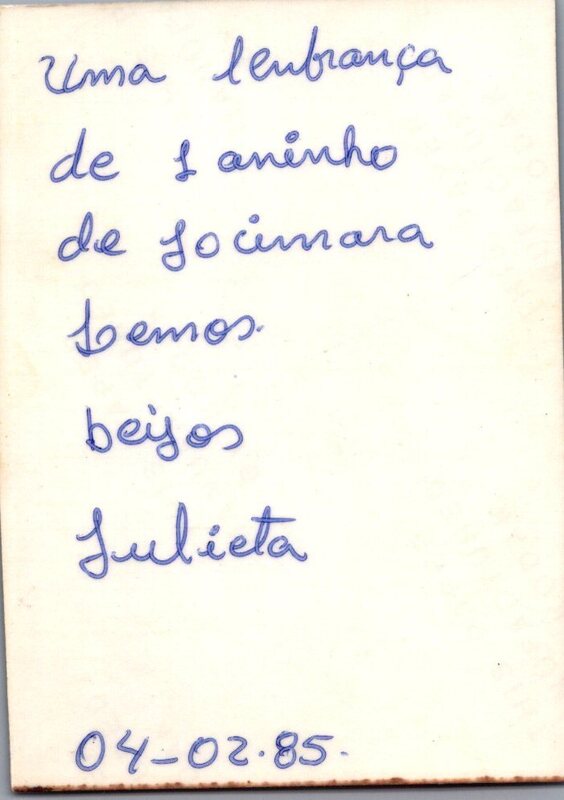 Uma lenbrança
de Laninho
de Jocimara
Lemos.
beijos
Julieta
04-02.85.